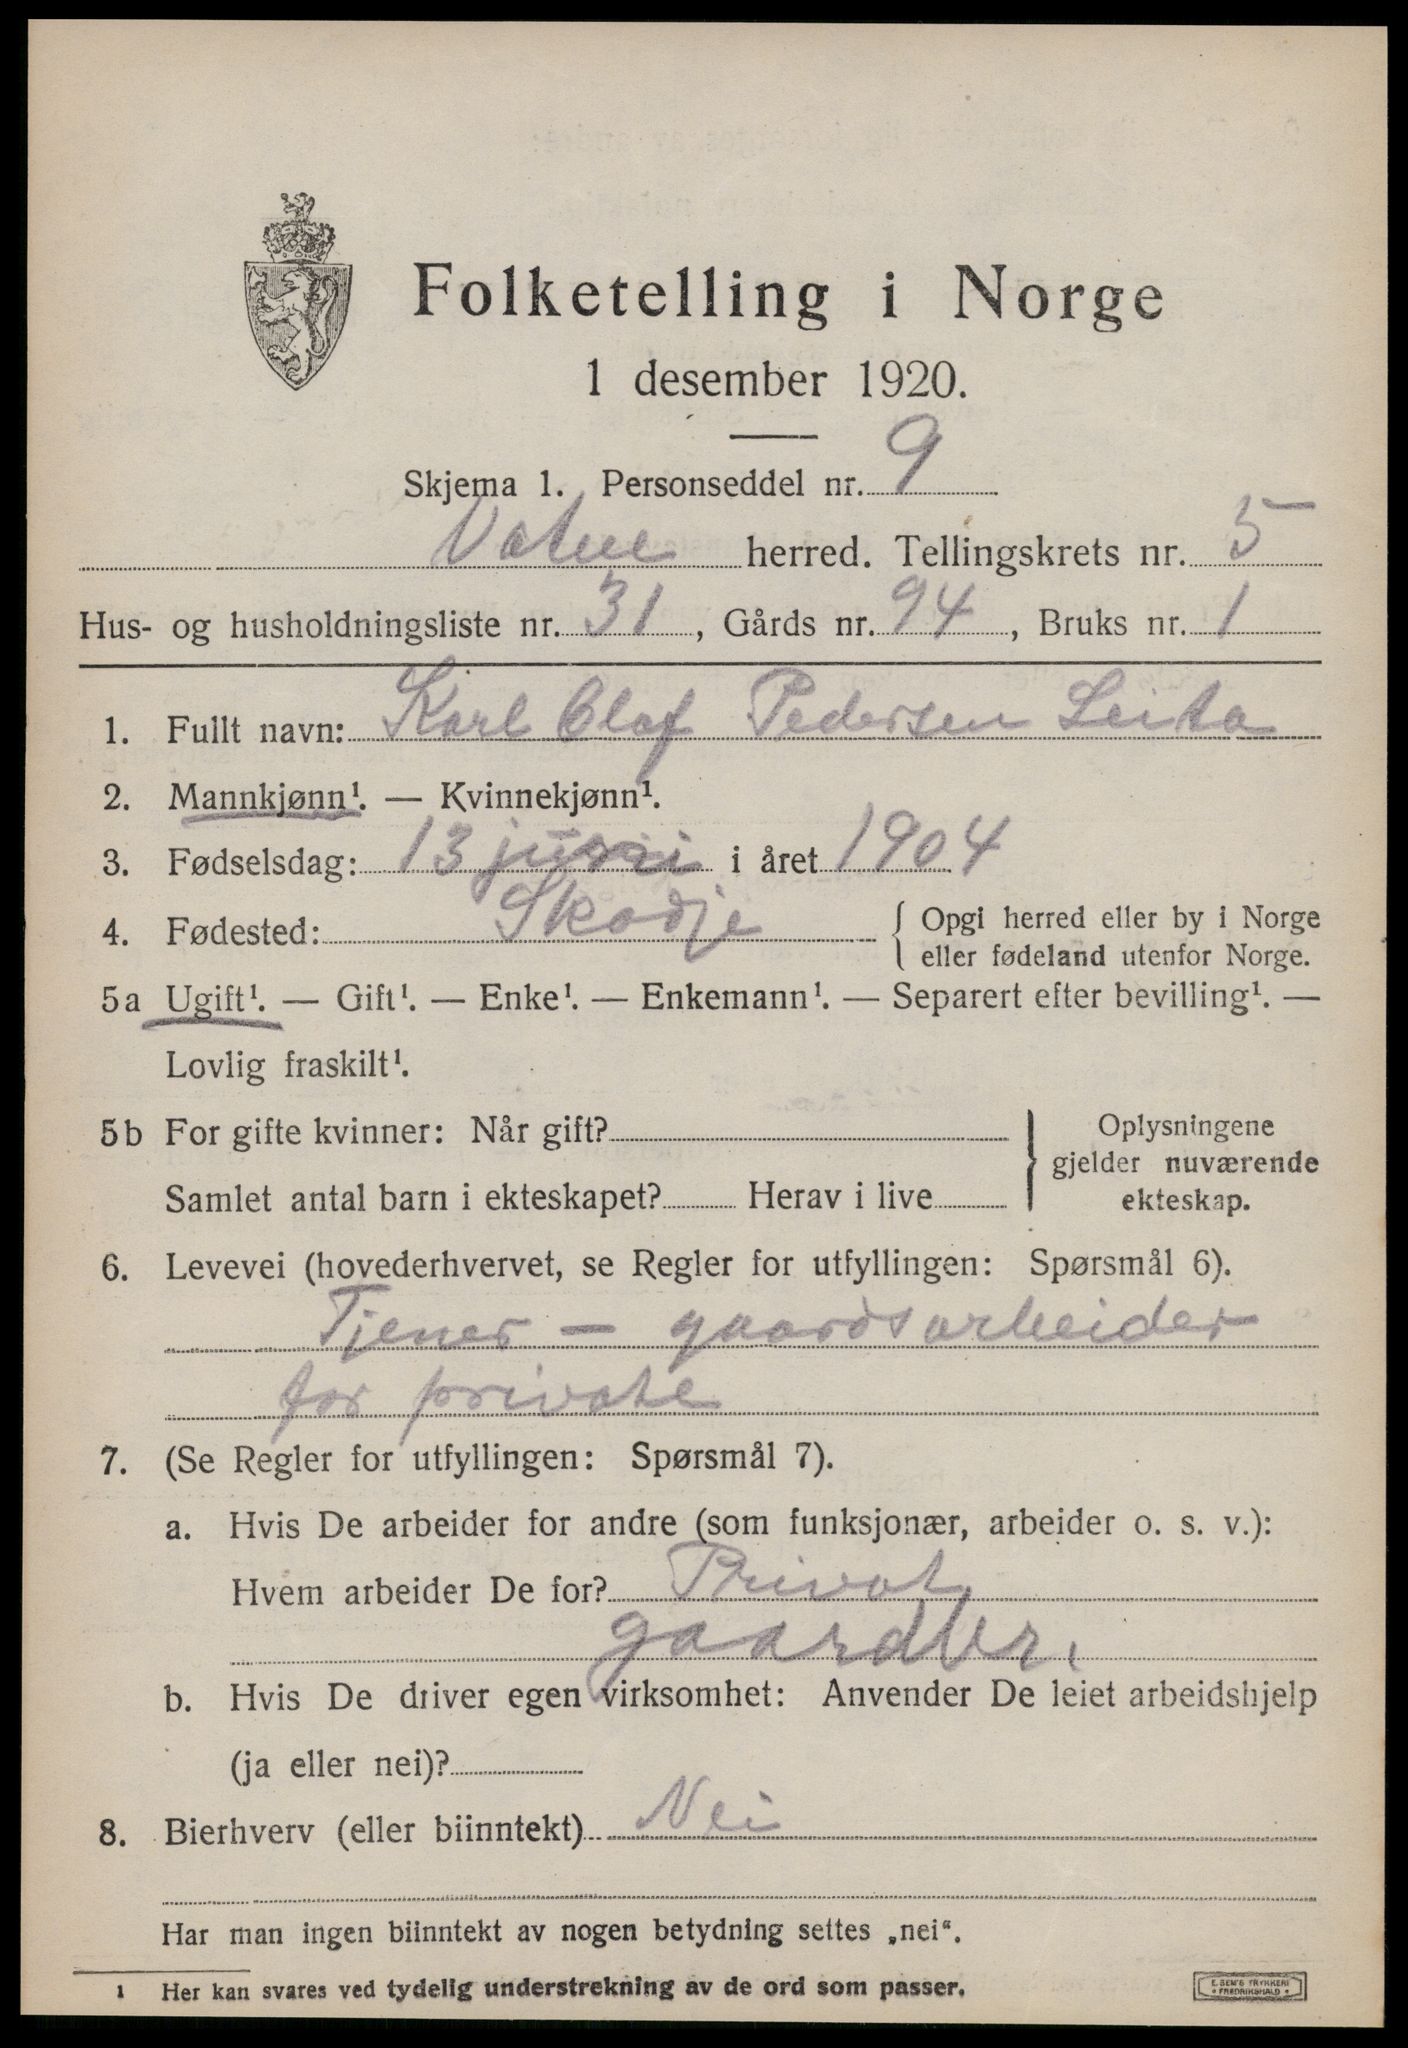 Folketelling i Norge
1 desember 1920.
Skjema 1. Personseddel nr. 9
Vatne herred. Tellingskrets nr. 5
Hus- og husholdningsliste nr. 31, Gårds nr. 94, Bruks nr. 1
1. Fullt navn: Karl Olaf Pedersen Leita
2. Mannkjønn¹. — Kvinnekjønn¹.
3. Fødselsdag: 13 juni i året 1904
4. Fødested: Skodje { Opgi herred eller by i Norge
eller fødeland utenfor Norge.
5a Ugift¹. — Gift¹. — Enke¹. — Enkemann¹. — Separert efter bevilling¹. —
Lovlig fraskilt¹.
5b For gifte kvinner: Når gift? } Oplysningene
gjelder nuværende
Samlet antal barn i ekteskapet? Herav i live ekteskap.
6. Levevei (hovederhvervet, se Regler for utfyllingen: Spørsmål 6).
Tjener - gaardsarbeider
for private
7. (Se Regler for utfyllingen: Spørsmål 7).
a. Hvis De arbeider for andre (som funksjonær, arbeider o. s. v.):
Hvem arbeider De for? Privat
gaardbr.
b. Hvis De driver egen virksomhet: Anvender De leiet arbeidshjelp
(ja eller nei)?
8. Bierhverv (eller biinntekt) Nei
Har man ingen biinntekt av nogen betydning settes „nei“.
1 Her kan svares ved tydelig understrekning av de ord som passer.
E. SEM'S TRYKKERI
FREDRIKSHALD